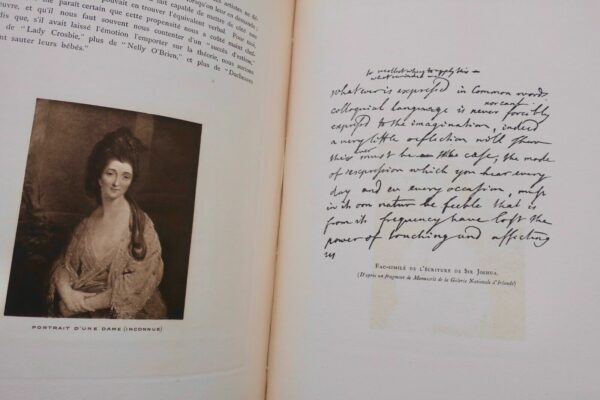 pouvait en trouver l'équivalent verbal. Pour
me paraît certain que cette propensité nous a coûté maint
et qu'il nous faut souvent nous contenter d'un "succès d'estime,"
dis que, s'il avait laissé l'émotion l'emporter sur la théorie, nous aurions
de "Lady Crosbie," plus de "Nelly O'Brien," et plus de "Duchesses
sauter leurs bébés."
PORTRAIT D'UNE DAME (INCONNUE)
to recollect why to apply this
whatever is expressed in common words
nor can
colloquial language is never forcibly
expressed to the imagination, indeed
a very little reflection will show
this must be the case, the mode
of expression which you hear every
day and on every occasion, must
in its own nature be feeble that is
from its frequency have lost the
power of touching and affecting
us
Fac-similé de l'écriture de Sir Joshua.
(D'après un fragment de Manuscrit de la Galerie Nationale d'Irlande)